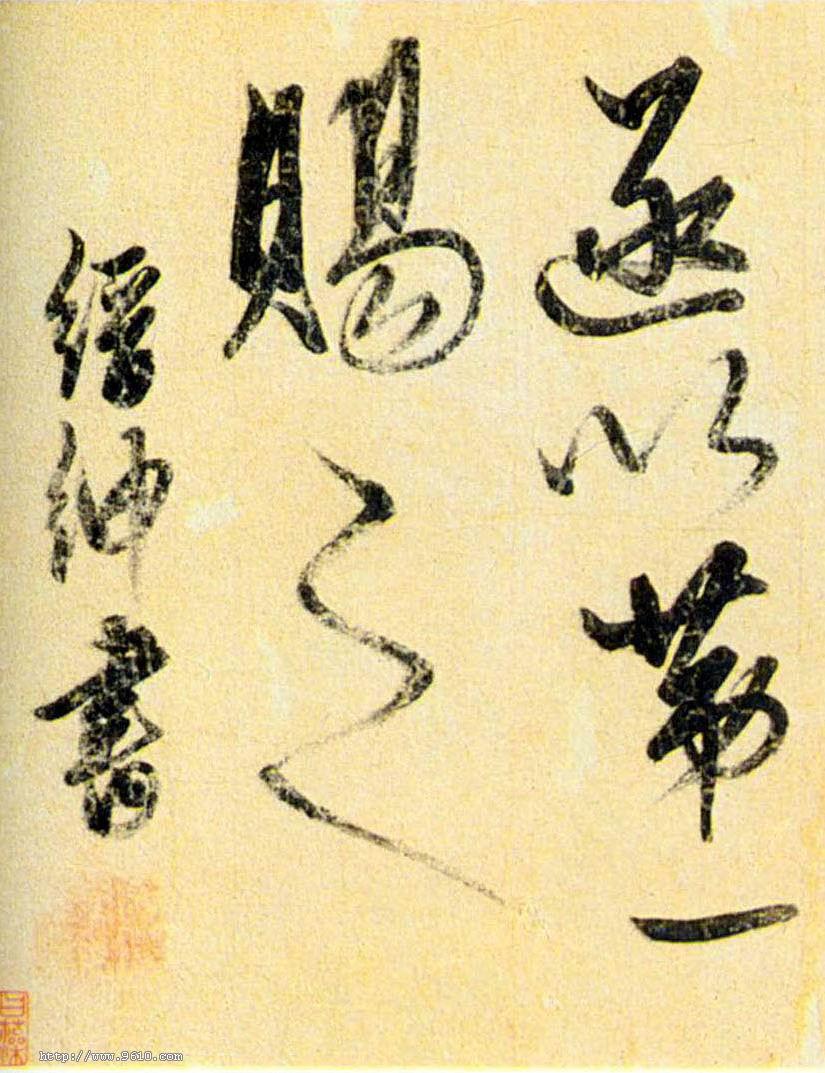 遂以帶一
賜之
縉紳書
http://www.9610.com